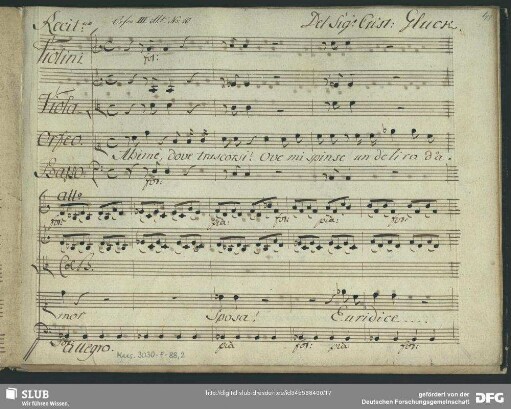 Recit:vo Orfeo III Att. No. 10 Del Sigr Crist: Gluck.
Violini
for:
Viola
Orfeo.
Ahimè, dove trascorsi! Ove mi spinse un deliro d'a-
Basso
for:
allo
for: pia: for: pia: for:
Col B.
mor Sposa! Euridice
Allegro. pia for: pia for:
Mus. 3030-F-88,2
SLUB
Wir führen Wissen.
http://digital.slub-dresden.de/id345588400/17
gefördert von der
Deutschen Forschungsgemeinschaft
DFG